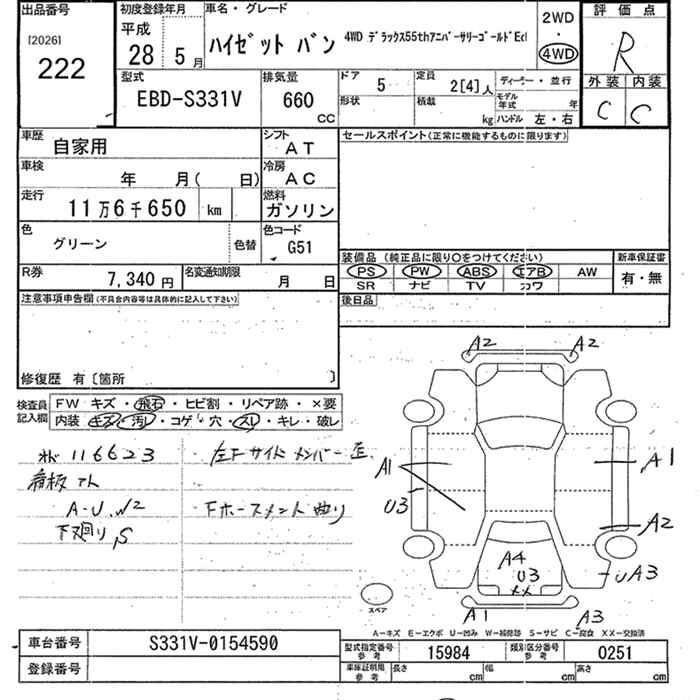 出品番号
[2026]
222
初度登録年月
平成
28 5月
車名・グレード
ハイゼット バン 4WD デラックス55thアニバーサリーゴールドEd
2WD
・
4WD
評価点
R
外装 内装
C C
型式
EBD-S331V
排気量
660
CC
ドア 5
定員 2[4]人
ディーゼル・並行
形状
積載 kg
モデル年式 年
ハンドル 左・右
車歴 自家用
シフト AT
車検 年 月( 日)
冷房 AC
走行 11万6千650 km
燃料 ガソリン
色 グリーン 色替
色コード G51
R券 7,340円
名変通知期限 月 日
セールスポイント(正常に機能するものに限ります)
装備品 (純正品に限り○をつけてください)
PS PW ABS エアB AW
SR ナビ TV カワ
新車保証書
有・無
後日品
注意事項申告欄(不具合内容等は具体的に記入して下さい)
修復歴 有〔箇所 〕
検査員記入欄
FW キズ・飛石・ヒビ割・リペア跡・×要
内装 キズ・汚レ・コゲ・穴・スレ・キレ・破レ
116623
看板
A-U.W2
下廻りS
左Fサイドメンバー
曲り
A2 A2
A1
U3
A1
A2
A4
U3
XX
UA3
A1
A3
スペア
A-キズ E-エクボ U-凹み W-補修跡 S-サビ C-腐食 XX-交換済
車台番号 S331V-0154590
登録番号
型式指定番号 参考 15984
類別区分番号 参考 0251
車庫証明用 参考
長さ cm 幅 cm 高さ cm